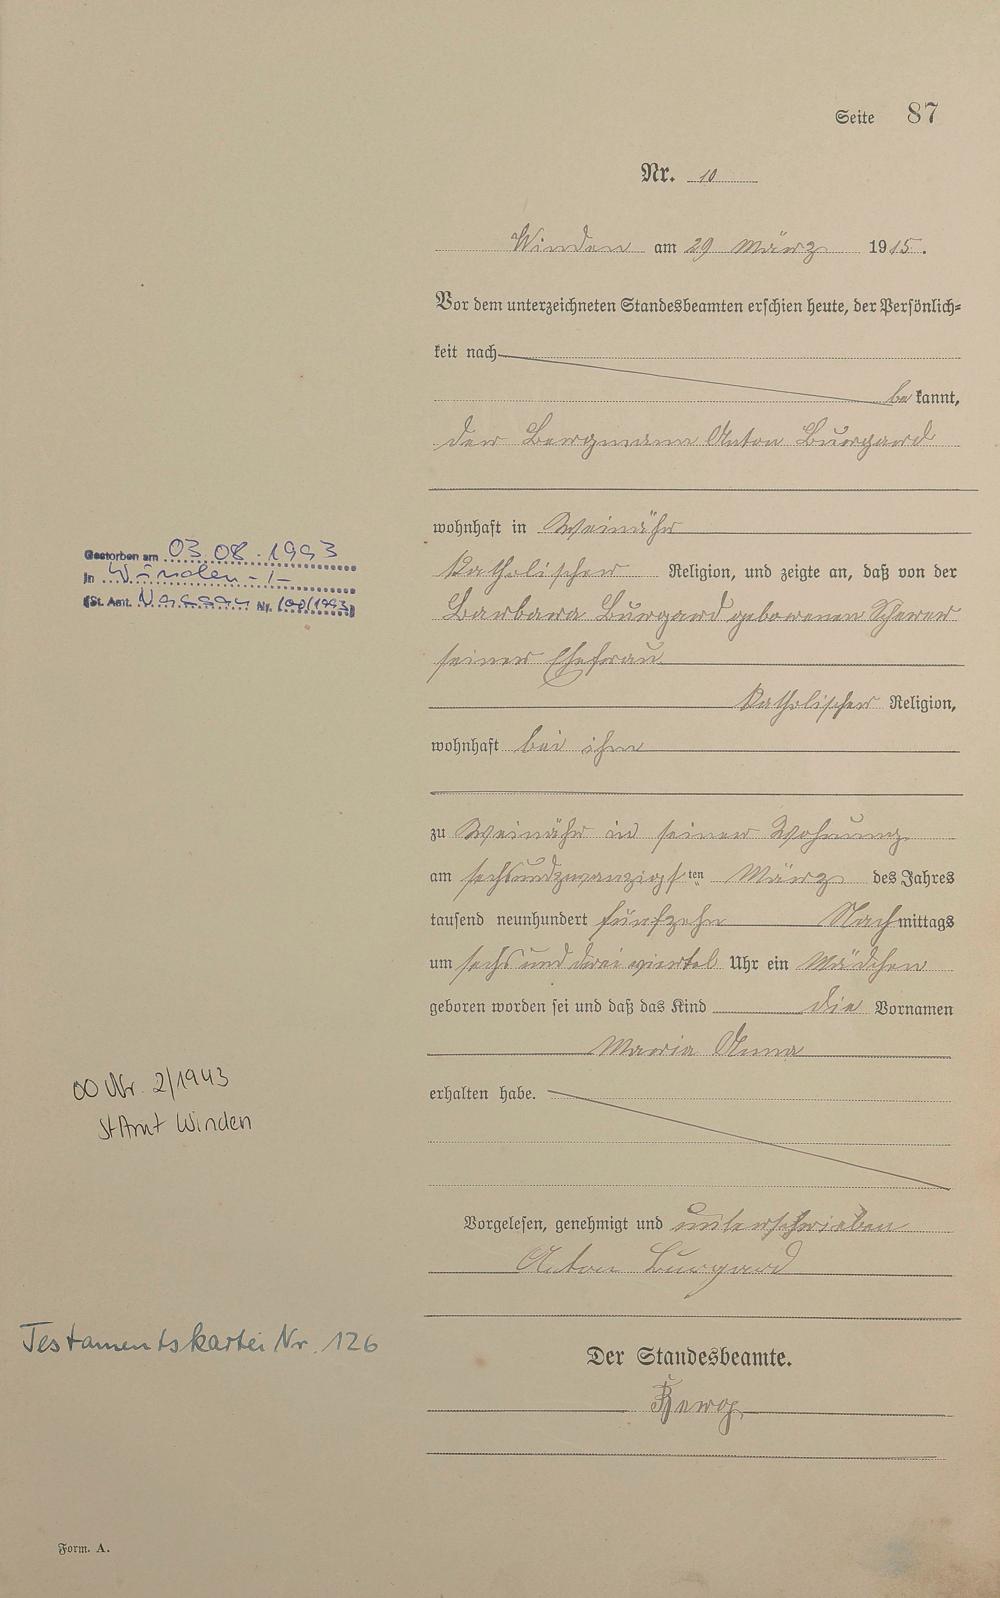 Seite 87
Nr. 10
Winden am 29 März 1915.
Vor dem unterzeichneten Standesbeamten erschien heute, der Persönlich=
keit nach
be kannt,
der Bergmann Anton Burgard
wohnhaft in Weinähr
katholischer Religion, und zeigte an, daß von der
Barbara Burgard geborenen Scherer
seiner Ehefrau
katholischer Religion,
wohnhaft bei ihm
zu Weinähr in seiner Wohnung
am sechsundzwanzigsten März des Jahres
tausend neunhundert fünfzehn Nachmittags
um sechs und drei viertel Uhr ein Mädchen
geboren worden sei und daß das Kind die Vornamen
Maria Anna
erhalten habe.
Vorgelesen, genehmigt und unterschrieben
Anton Burgard
Der Standesbeamte.
Gestorben am 03.08.1993
in Winden -1-
(St. Amt. Nassau Nr. 100/1993)
oo Nr. 2/1943
StAmt Winden
Testamentskartei Nr. 126
Form. A.